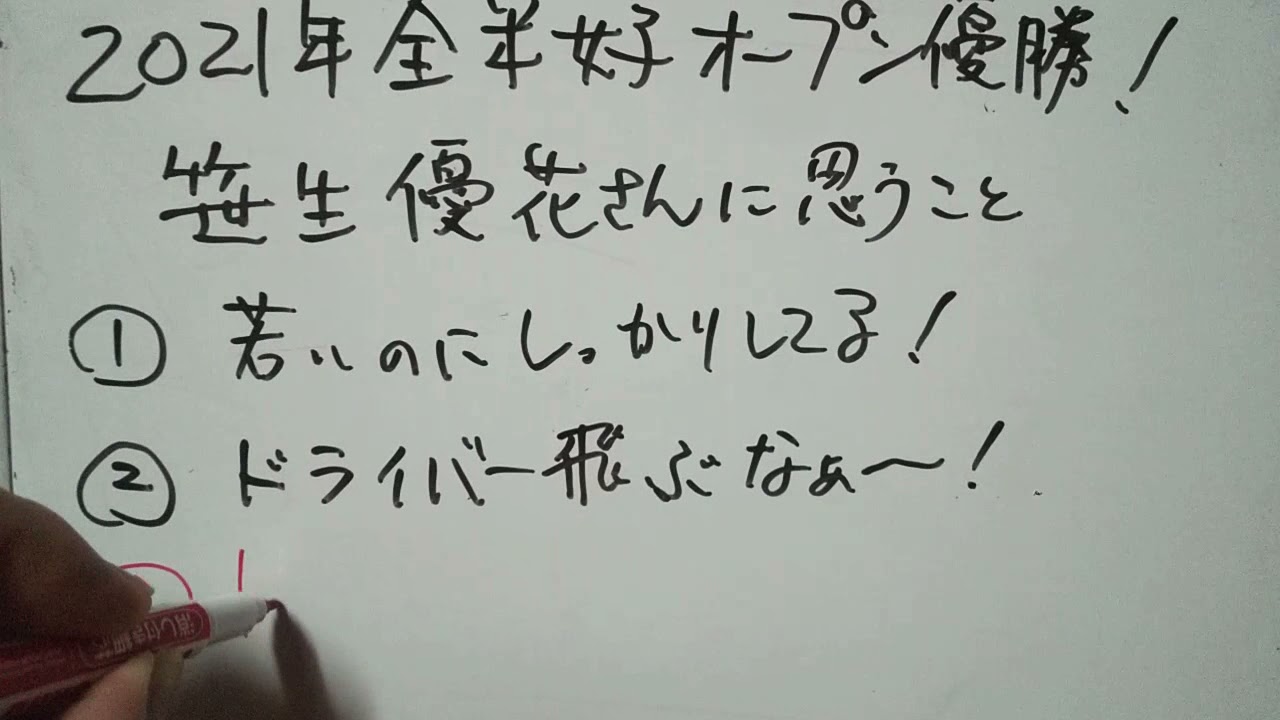 2021年全米女子オープン優勝!
笹生優花さんに思うこと
① 若いのにしっかりしてる!
② ドライバー飛ぶなぁ〜!
消し付き細字